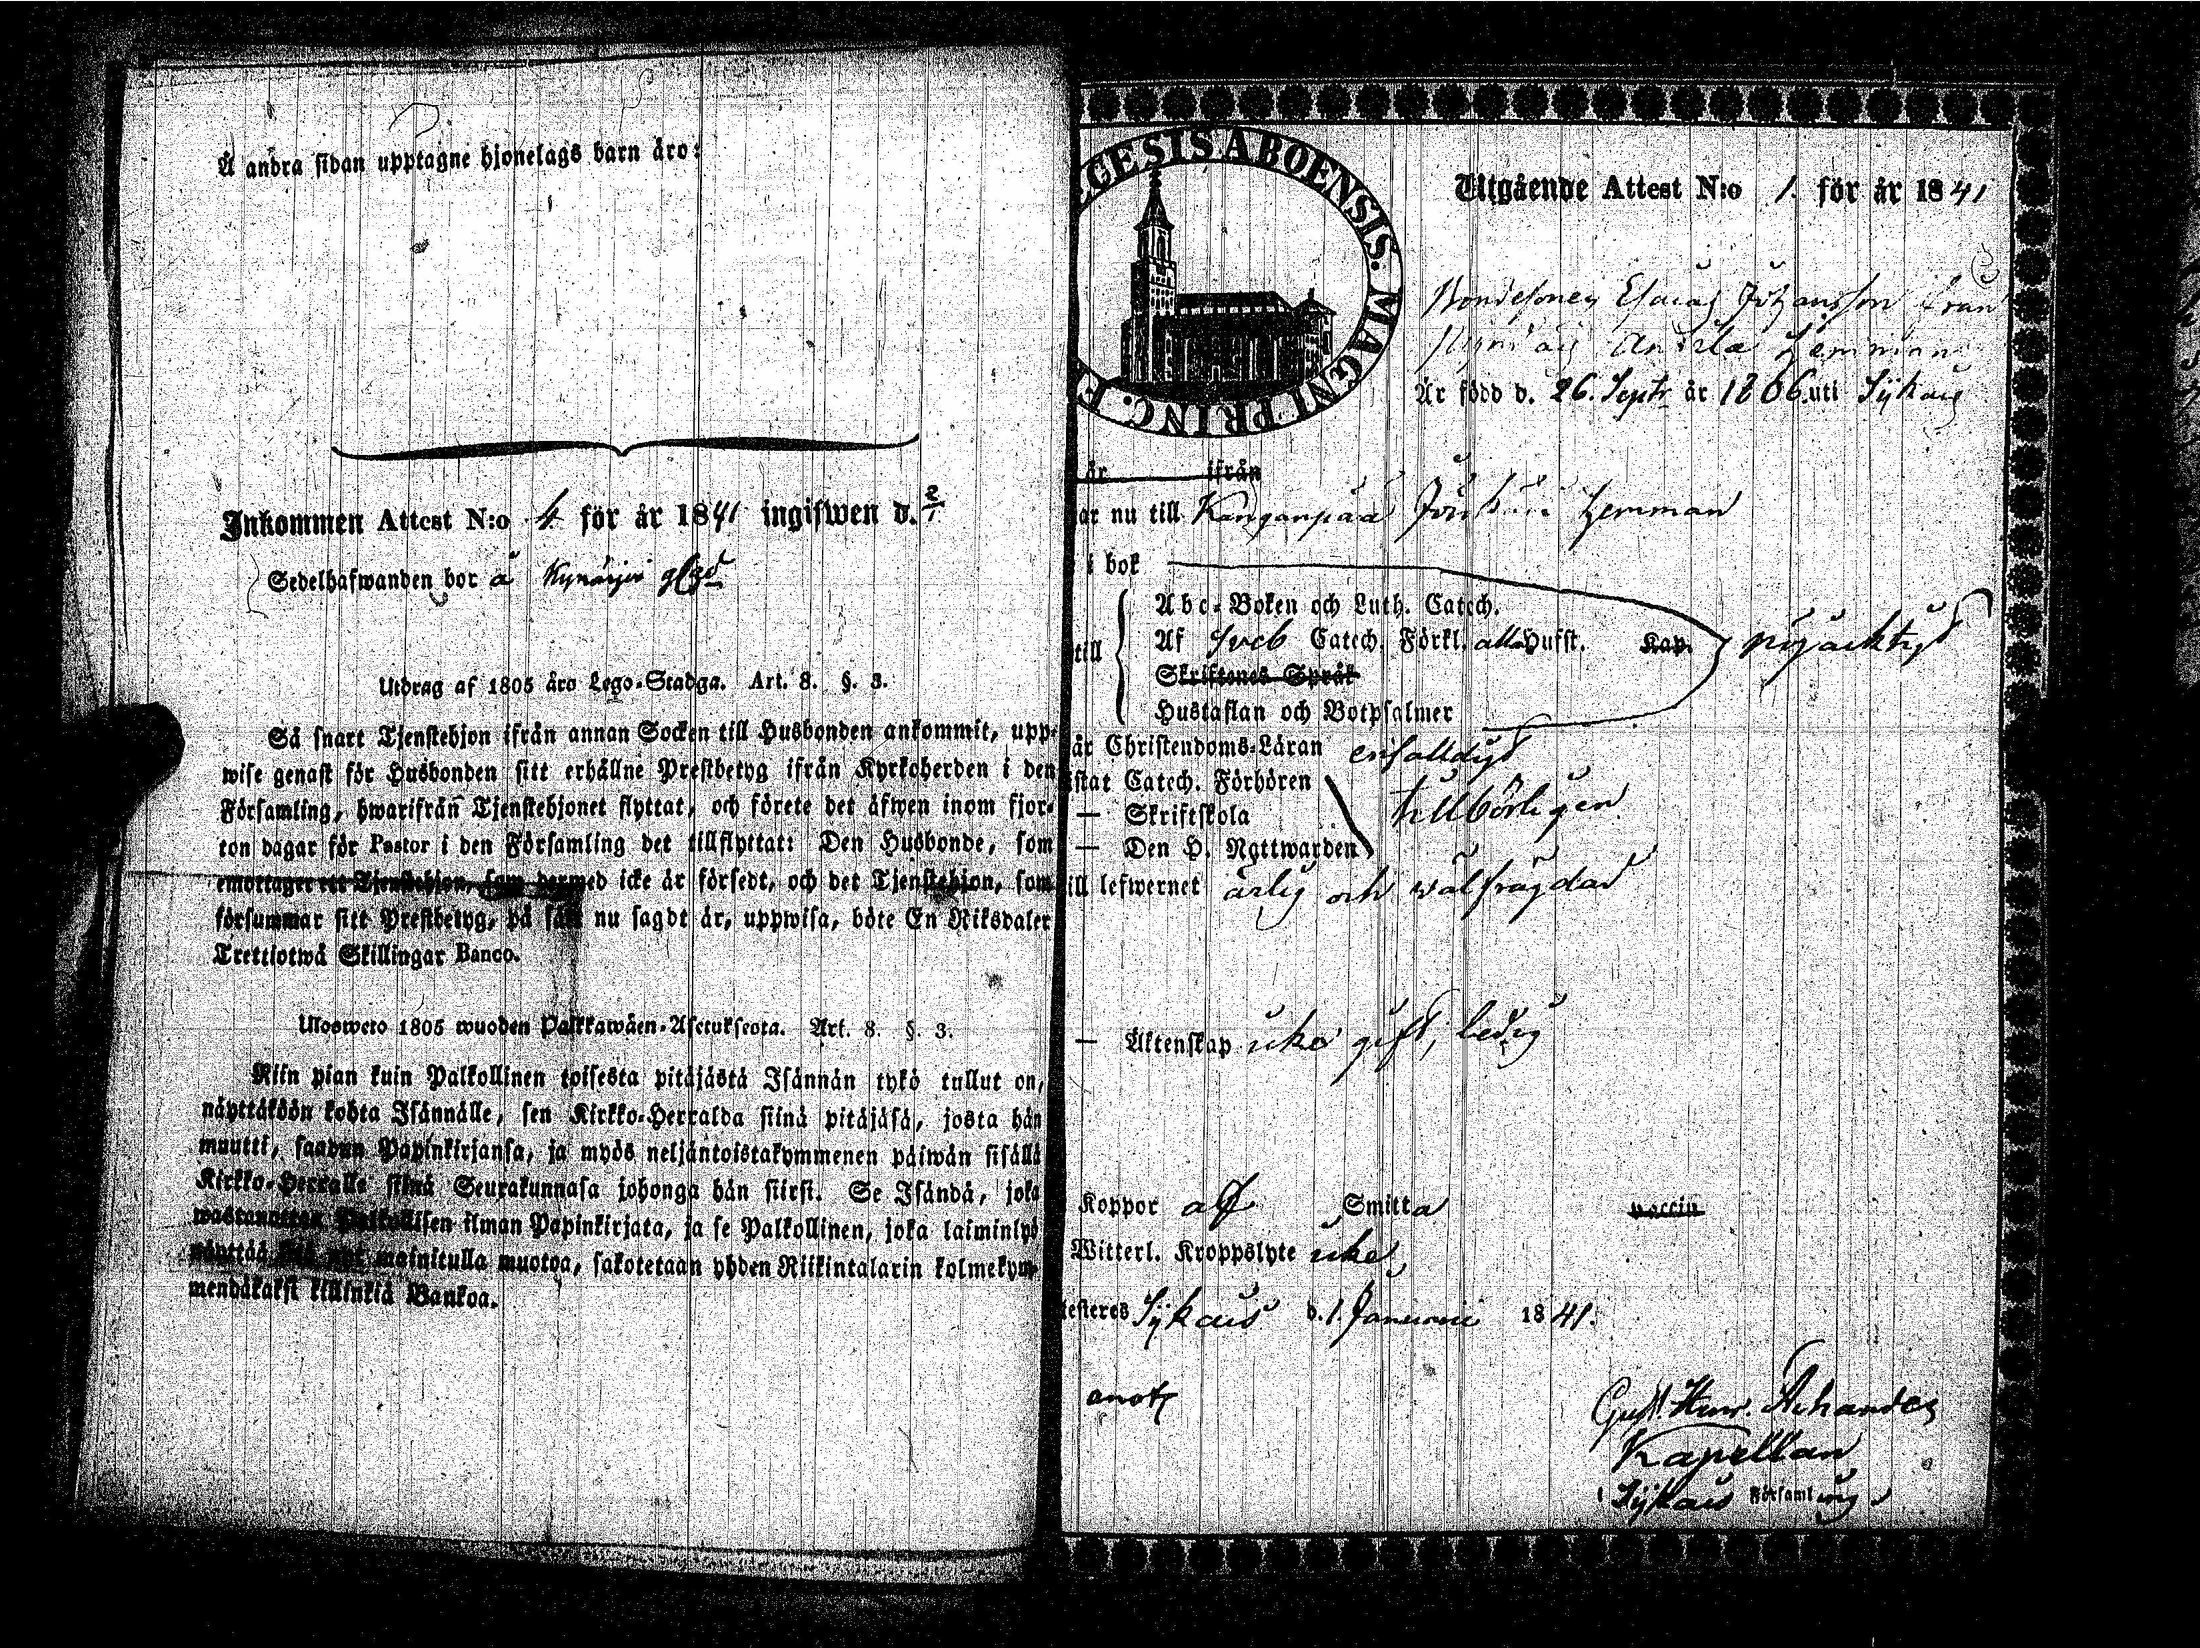 Å andra sidan upptagne hjonelags barn äro:
Inkommen Attest N:o 4 för år 1841 ingifwen d. 2/1
Sedelhafwanden bor å Kynäsjei
Utdrag af 1805 års Lego-Stadga. Art. 8. §. 3.
Så snart Tjenstehjon ifrån annan Socken till Husbonden ankommit, upp-
wise genast för Husbonden sitt erhållne Prestbetyg ifrån Kyrkoherden i den
Församling, hwarifrån Tjenstehjonet flyttat, och förete det äfwen inom fjor-
ton dagar för Pastor i den Församling det tillflyttat: Den Husbonde, som
emottager ett Tjenstehjon, som dermed icke är försedt, och det Tjenstehjon, som
försummar sitt Prestbetyg, på sätt nu sagdt är, uppwisa, böte En Riksdaler
Trettiotwå Skillingar Banco.
Ulosweto 1805 wuoden Palkkawäen-Asetuksesta. Art. 8. §. 3.
Niin pian kuin Palkollinen toisesta pitäjästä Isännän tykö tullut on,
näyttäköön kohta Isännälle, sen Kirkko-Herralda siinä pitäjäsä, josta hän
muutti, saadun Papinkirjansa, ja myös neljäntoistakymmenen päiwän sisällä
Kirkko-Herralle siinä Seurakunnasa johonga hän siirsi. Se Isändä, joka
wastanottaa Palkollisen ilman Papinkirjata, ja se Palkollinen, joka laiminlyö
näyttää sitä nyt mainitulla muotoa, sakotetaan yhden Riikintalarin kolmekym-
mendäkaksi killinkiä Bankoa.
ECESIS ABOENSIS. MAGNI PRINC. F
Utgående Attest N:o 1. för år 1841
Bondesonen Esaias Johansson från
Anttila Hemman
Är född d. 26. Septr år 1806 uti Sijkais
är ifrån
ar nu till Kanganpää Hemman
i bok
Abc-Boken och Luth. Catech.
till Af Sveb Catech. Förkl. alla Hufst. Kap. nöjacktigt
Skriftenes Språk
Hustaflan och Botpsalmer
år Christendoms-Läran enfalldigt
istat Catech. Förhören
— Skriftskola tillbörligen.
— Den H. Nattwarden
ill lefwernet ärlig och wälfrägdad
— Äktenskap icke gift, ledig
Koppor aft Smitta vaccin
Witterl. Kroppslyte icke,
testeres Sijkais d. 1. Januarii 1841.
anot
Gust. Henr. Achander
Kapellan
i Sijkais Församling